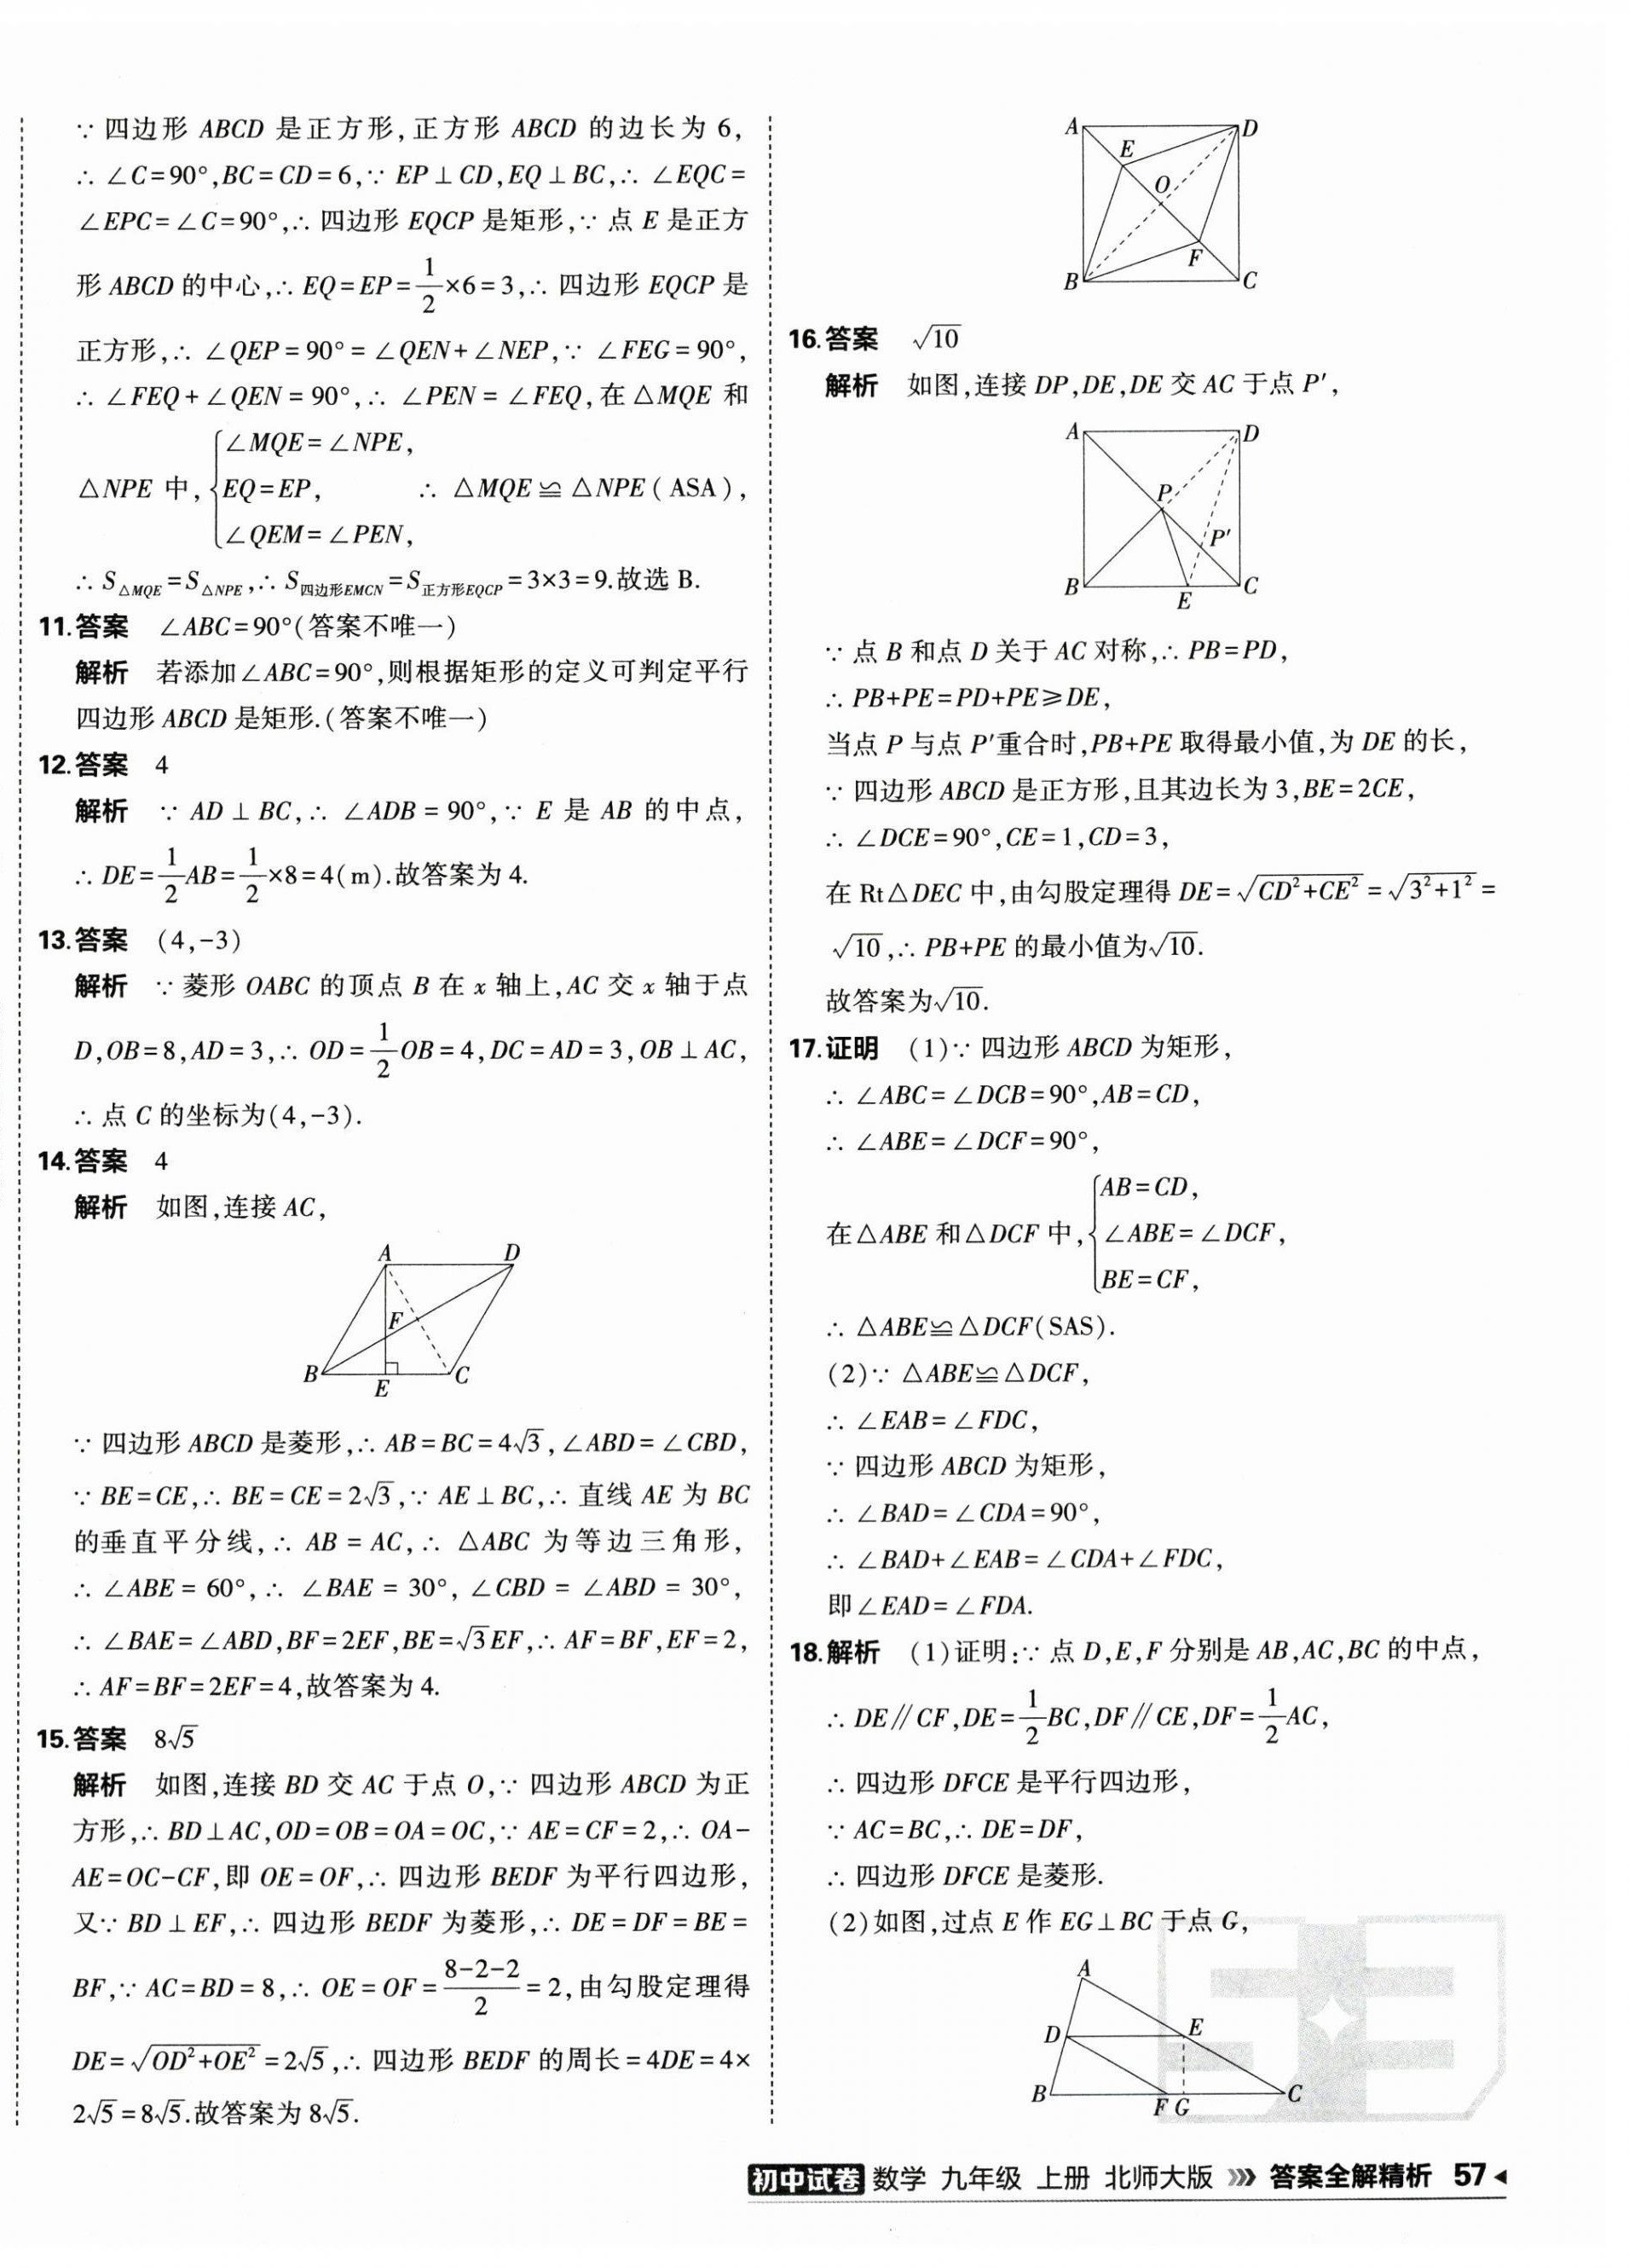 ∵ 四边形 ABCD 是正方形,正方形 ABCD 的边长为 6,
∴ ∠C=90°,BC=CD=6,∵ EP⊥CD,EQ⊥BC,∴ ∠EQC=
∠EPC=∠C=90°,∴ 四边形 EQCP 是矩形,∵ 点 E 是正方
形 ABCD 的中心,∴ EQ=EP=1/2×6=3,∴ 四边形 EQCP 是
正方形,∴ ∠QEP=90°=∠QEN+∠NEP,∵ ∠FEG=90°,
∴ ∠FEQ+∠QEN=90°,∴ ∠PEN=∠FEQ,在△MQE 和
∠MQE=∠NPE,
△NPE 中, EQ=EP, ∴ △MQE≌△NPE(ASA),
∠QEM=∠PEN,
∴ S△MQE=S△NPE,∴ S四边形EMCN=S正方形EQCP=3×3=9.故选 B.
11.答案 ∠ABC=90°(答案不唯一)
解析 若添加∠ABC=90°,则根据矩形的定义可判定平行
四边形 ABCD 是矩形.(答案不唯一)
12.答案 4
解析 ∵ AD⊥BC,∴ ∠ADB=90°,∵ E 是 AB 的中点,
∴ DE=1/2AB=1/2×8=4(m).故答案为 4.
13.答案 (4,-3)
解析 ∵ 菱形 OABC 的顶点 B 在 x 轴上,AC 交 x 轴于点
D,OB=8,AD=3,∴ OD=1/2OB=4,DC=AD=3,OB⊥AC,
∴ 点 C 的坐标为(4,-3).
14.答案 4
解析 如图,连接 AC,
A D
F
B E C
∵ 四边形 ABCD 是菱形,∴ AB=BC=4√3,∠ABD=∠CBD,
∵ BE=CE,∴ BE=CE=2√3,∵ AE⊥BC,∴ 直线 AE 为 BC
的垂直平分线,∴ AB=AC,∴ △ABC 为等边三角形,
∴ ∠ABE=60°,∴ ∠BAE=30°,∠CBD=∠ABD=30°,
∴ ∠BAE=∠ABD,BF=2EF,BE=√3EF,∴ AF=BF,EF=2,
∴ AF=BF=2EF=4,故答案为 4.
15.答案 8√5
解析 如图,连接 BD 交 AC 于点 O,∵ 四边形 ABCD 为正
方形,∴ BD⊥AC,OD=OB=OA=OC,∵ AE=CF=2,∴ OA-
AE=OC-CF,即 OE=OF,∴ 四边形 BEDF 为平行四边形,
又∵ BD⊥EF,∴ 四边形 BEDF 为菱形,∴ DE=DF=BE=
BF,∵ AC=BD=8,∴ OE=OF=(8-2-2)/2=2,由勾股定理得
DE=√(OD²+OE²)=2√5,∴ 四边形 BEDF 的周长=4DE=4×
2√5=8√5.故答案为 8√5.
A D
E
O
F
B C
16.答案 √10
解析 如图,连接 DP,DE,DE 交 AC 于点 P′,
A D
P
P′
B E C
∵ 点 B 和点 D 关于 AC 对称,∴ PB=PD,
∴ PB+PE=PD+PE≥DE,
当点 P 与点 P′重合时,PB+PE 取得最小值,为 DE 的长,
∵ 四边形 ABCD 是正方形,且其边长为 3,BE=2CE,
∴ ∠DCE=90°,CE=1,CD=3,
在 Rt△DEC 中,由勾股定理得 DE=√(CD²+CE²)=√(3²+1²)=
√10,∴ PB+PE 的最小值为√10.
故答案为√10.
17.证明 (1)∵ 四边形 ABCD 为矩形,
∴ ∠ABC=∠DCB=90°,AB=CD,
∴ ∠ABE=∠DCF=90°,
AB=CD,
在△ABE 和△DCF 中, ∠ABE=∠DCF,
BE=CF,
∴ △ABE≌△DCF(SAS).
(2)∵ △ABE≌△DCF,
∴ ∠EAB=∠FDC,
∵ 四边形 ABCD 为矩形,
∴ ∠BAD=∠CDA=90°,
∴ ∠BAD+∠EAB=∠CDA+∠FDC,
即∠EAD=∠FDA.
18.解析 (1)证明:∵ 点 D,E,F 分别是 AB,AC,BC 的中点,
∴ DE∥CF,DE=1/2BC,DF∥CE,DF=1/2AC,
∴ 四边形 DFCE 是平行四边形,
∵ AC=BC,∴ DE=DF,
∴ 四边形 DFCE 是菱形.
(2)如图,过点 E 作 EG⊥BC 于点 G,
A
D E
B F G C
53
初中试卷 数学 九年级 上册 北师大版 》》 答案全解精析 57